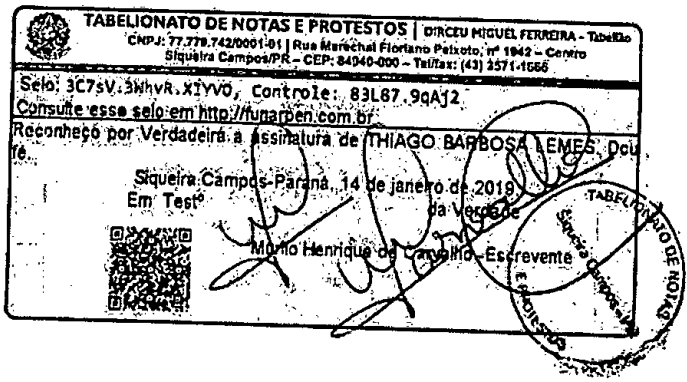 TABELIONATO DE NOTAS E PROTESTOS | DIRCEU MIGUEL FERREIRA - Tabelião
CNPJ: 77.779.742/0001-01 | Rua Marechal Floriano Peixoto, nº 1942 - Centro
Siqueira Campos/PR - CEP: 84940-000 - Tel/fax: (43) 3571-1666
Selo: 3C7sV.3WhvR.XIYVO, Controle: 83L87.9qAj2
Consulte esse selo em http://funarpen.com.br
Reconheço por Verdadeira a assinatura de THIAGO BARBOSA LEMES. Dou
fé.
Siqueira Campos-Paraná, 14 de janeiro de 2019
Em Testº da Verdade
Murilo Henrique de Carvalho - Escrevente
TABELIONATO DE NOTAS
E PROTESTOS
Siqueira Campos - PR